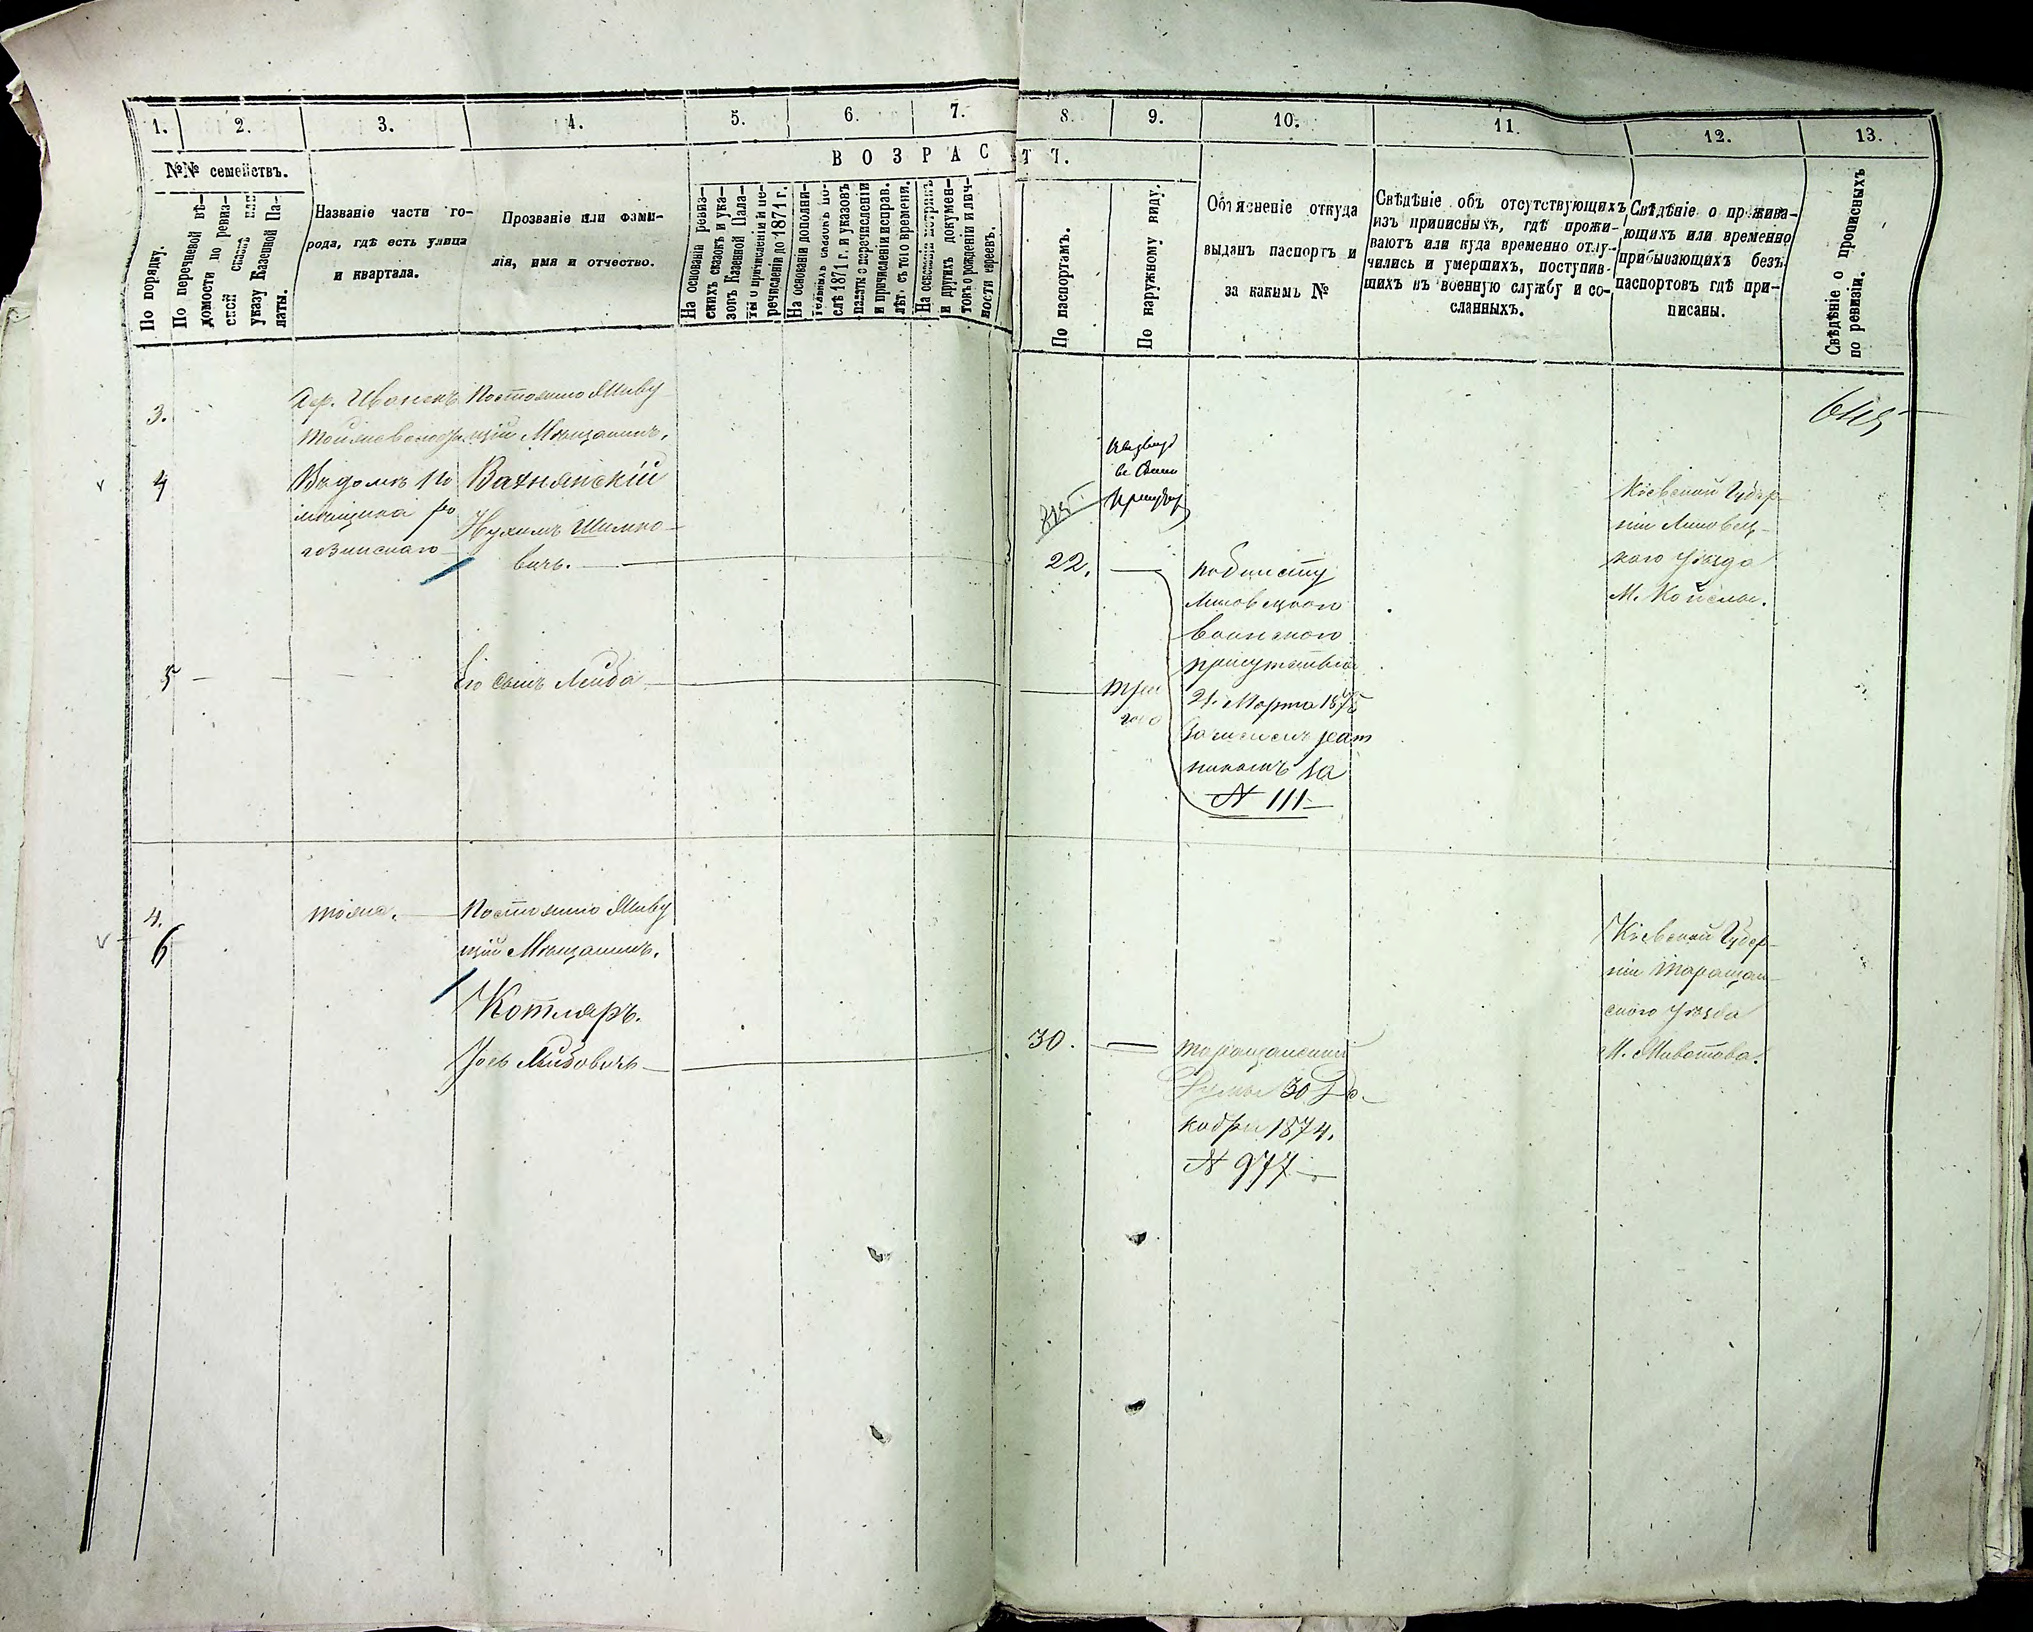 1. 2. 3. 4. 5. 6. 7. 8. 9. 10. 11. 12. 13.
№№ семействъ.
ВОЗРАСТЪ.
По порядку.
По перечневой вѣ-
домости по ревиз-
ской сказкѣ или
указу Казенной Па-
латы.
Названіе части го-
рода, гдѣ есть улица
и квартала.
Прозваніе или фами-
лія, имя и отчество.
На основаніи ревиз-
скихъ сказокъ и ука-
зовъ Казенной Пала-
ты о причисленіи и пе-
речисленіи до 1871 г.
На основаніи дополни-
тельныхъ сказокъ по-
слѣ 1871 г. и указовъ
палаты о перечисленіи
и причисленіи исправ.
лѣт. съ того времени.
На основаніи метрикъ
и другихъ докумен-
товъ о рожденіи и лич-
ности евреевъ.
По паспортамъ.
По наружному виду.
Объясненіе откуда
выданъ паспортъ и
за какимъ №
Свѣдѣніе объ отсутствующихъ
изъ приписныхъ, гдѣ прожи-
ваютъ или куда временно отлу-
чились и умершихъ, поступив-
шихъ въ военную службу и со-
сланныхъ.
Свѣдѣніе о прожива-
ющихъ или временно
прибывающихъ безъ
паспортовъ гдѣ при-
писаны.
Свѣдѣніе о прописныхъ
по ревизіи.
3.
Дер.
Постоянно живу
щій Мѣщанинъ.
4
Въ домѣ по
мѣщика
Вахнянскій
Нухимъ Шимко-
вичъ.
22.
Липовецкаго
воинскаго
присутствія
21 Марта 1875
№ 111
Кіевской Губер
ніи Липовец-
каго уѣзда
М.
5
Его сынъ Лейба
4.
6
тоже.
Постоянно живу
щій Мѣщанинъ.
Котляръ.
Іось Лейбовичъ
30.
Таращанской
Думы 30 Де-
кабря 1874.
№ 977
Кіевской Губер-
ніи Таращан-
скаго уѣзда
М. Животова.